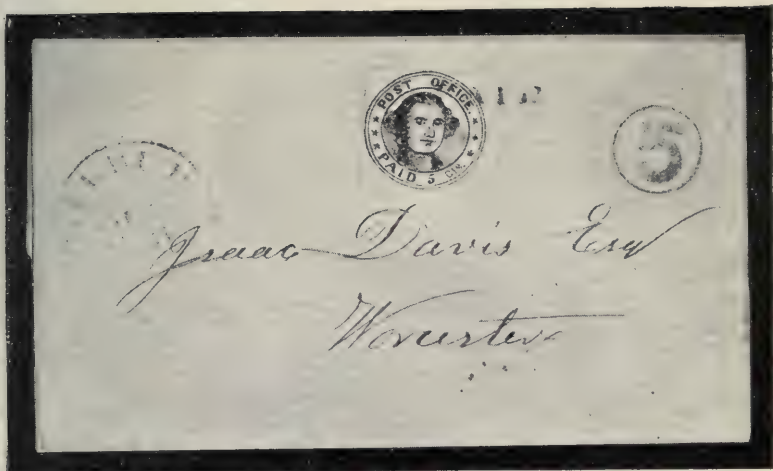 POST OFFICE
PAID 5 Cts.
5
Isaac Davis Esq
Worcester